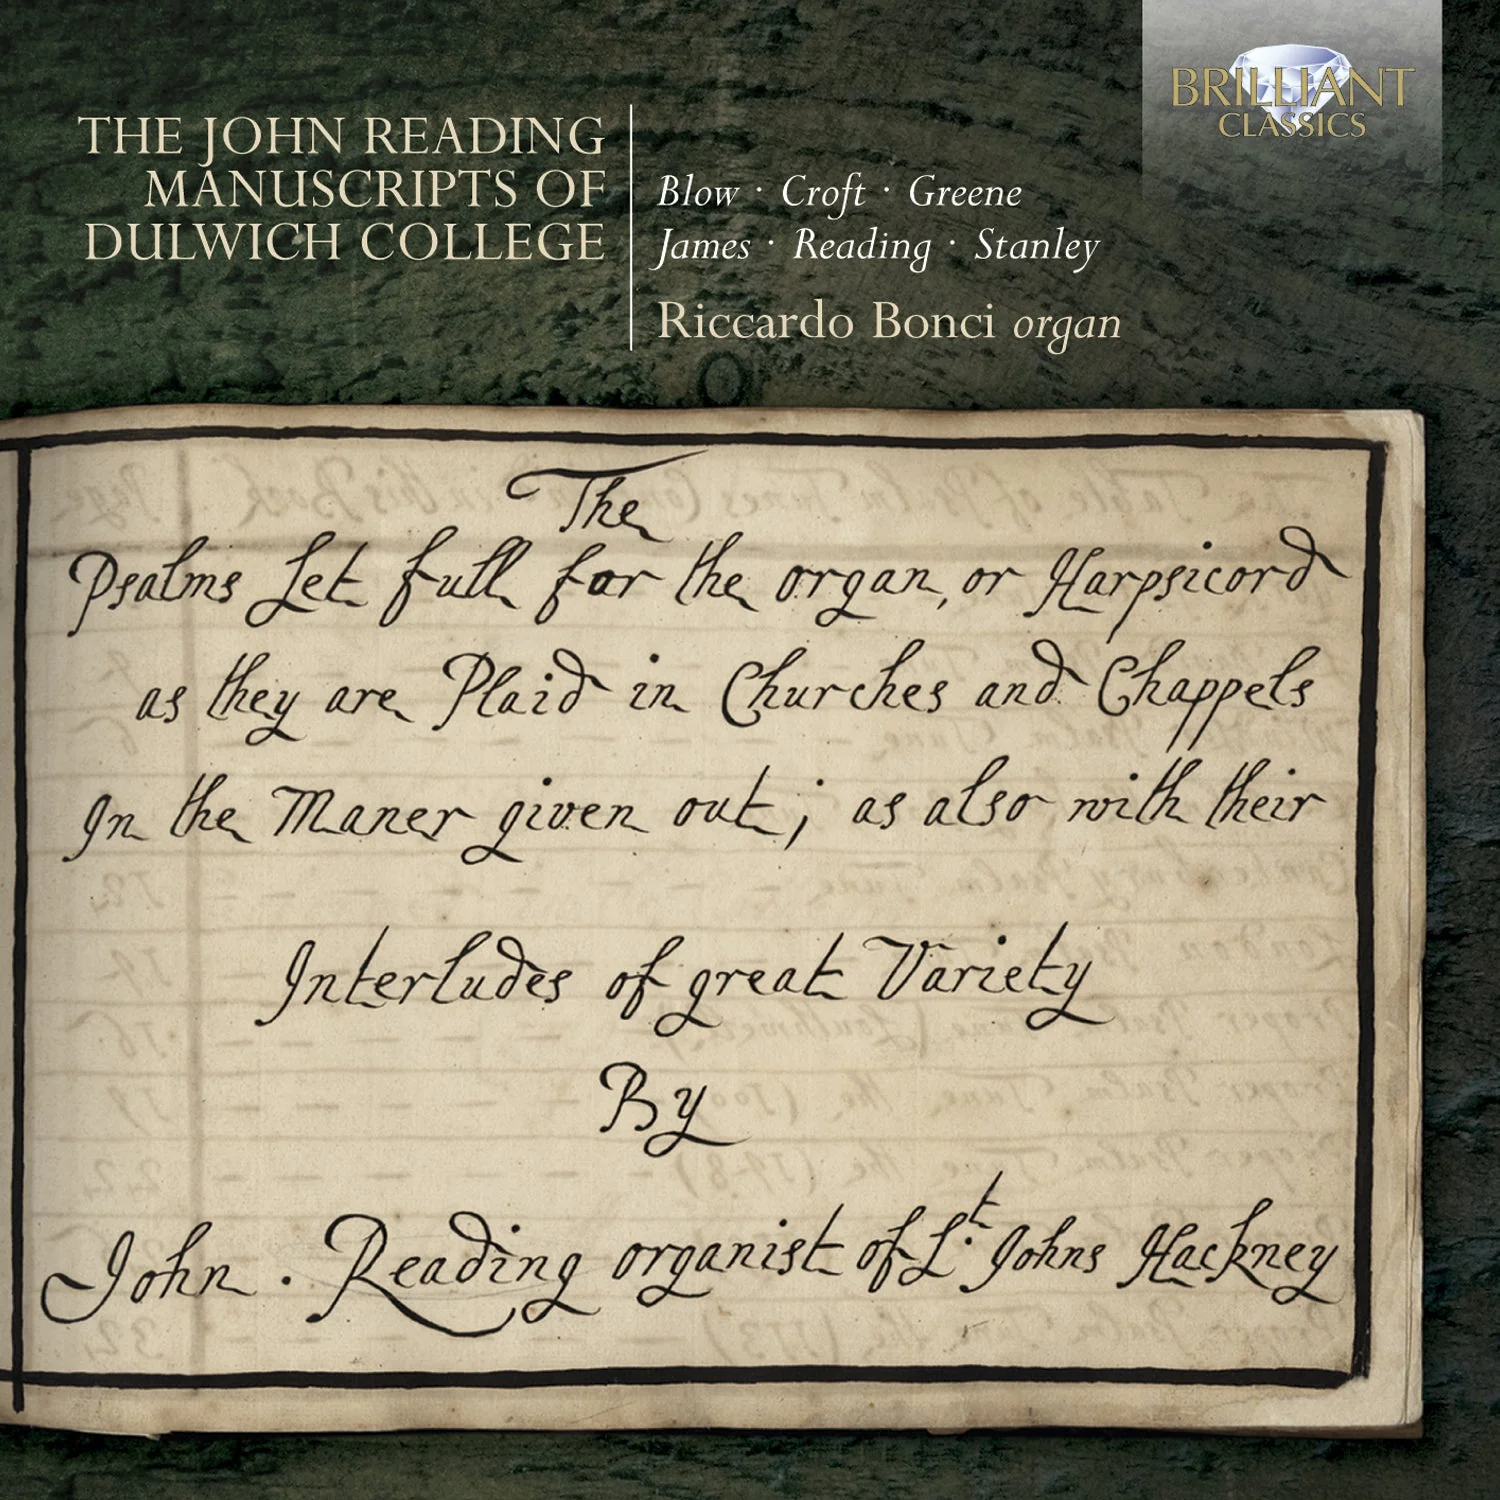 BRILLIANT
CLASSICS
THE JOHN READING
MANUSCRIPTS OF
DULWICH COLLEGE
Blow · Croft · Greene
James · Reading · Stanley
Riccardo Bonci organ
The
Psalms Set full for the organ, or Harpsicord
as they are Plaid in Churches and Chappels
In the Maner given out; as also with their
Interludes of great Variety
By
John. Reading organist of St. Johns Hackney